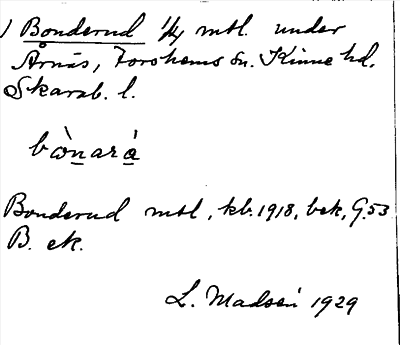 ) Bonderud 1/4 mtl. under
Årnäs, Forshems sn. Kinne hd.
Skarab. l.
bὼnarà
Bonderud mtl, kb. 1918, bek, G. 53
B. ek.
L. Madsén 1929